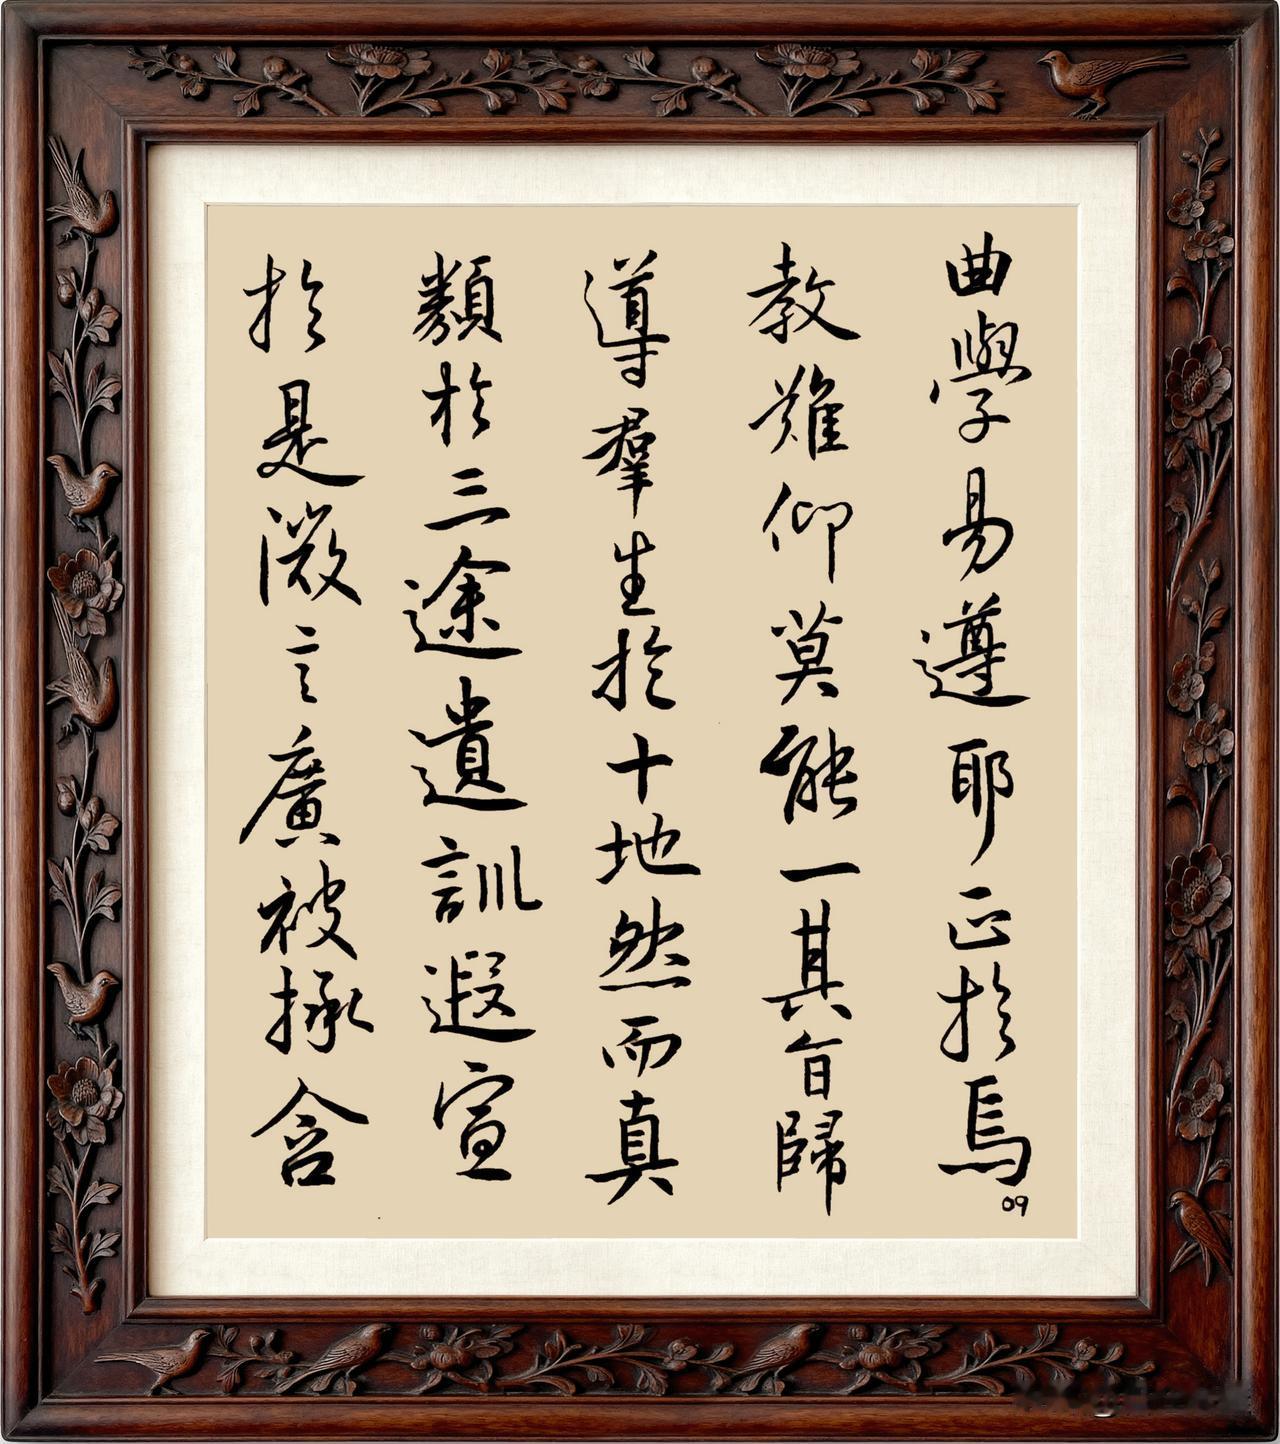 於是微言廣被拯含
類於三途遺訓遐宣
導羣生於十地然而真
教難仰莫能一其旨歸
曲學易遵耶正於焉
09